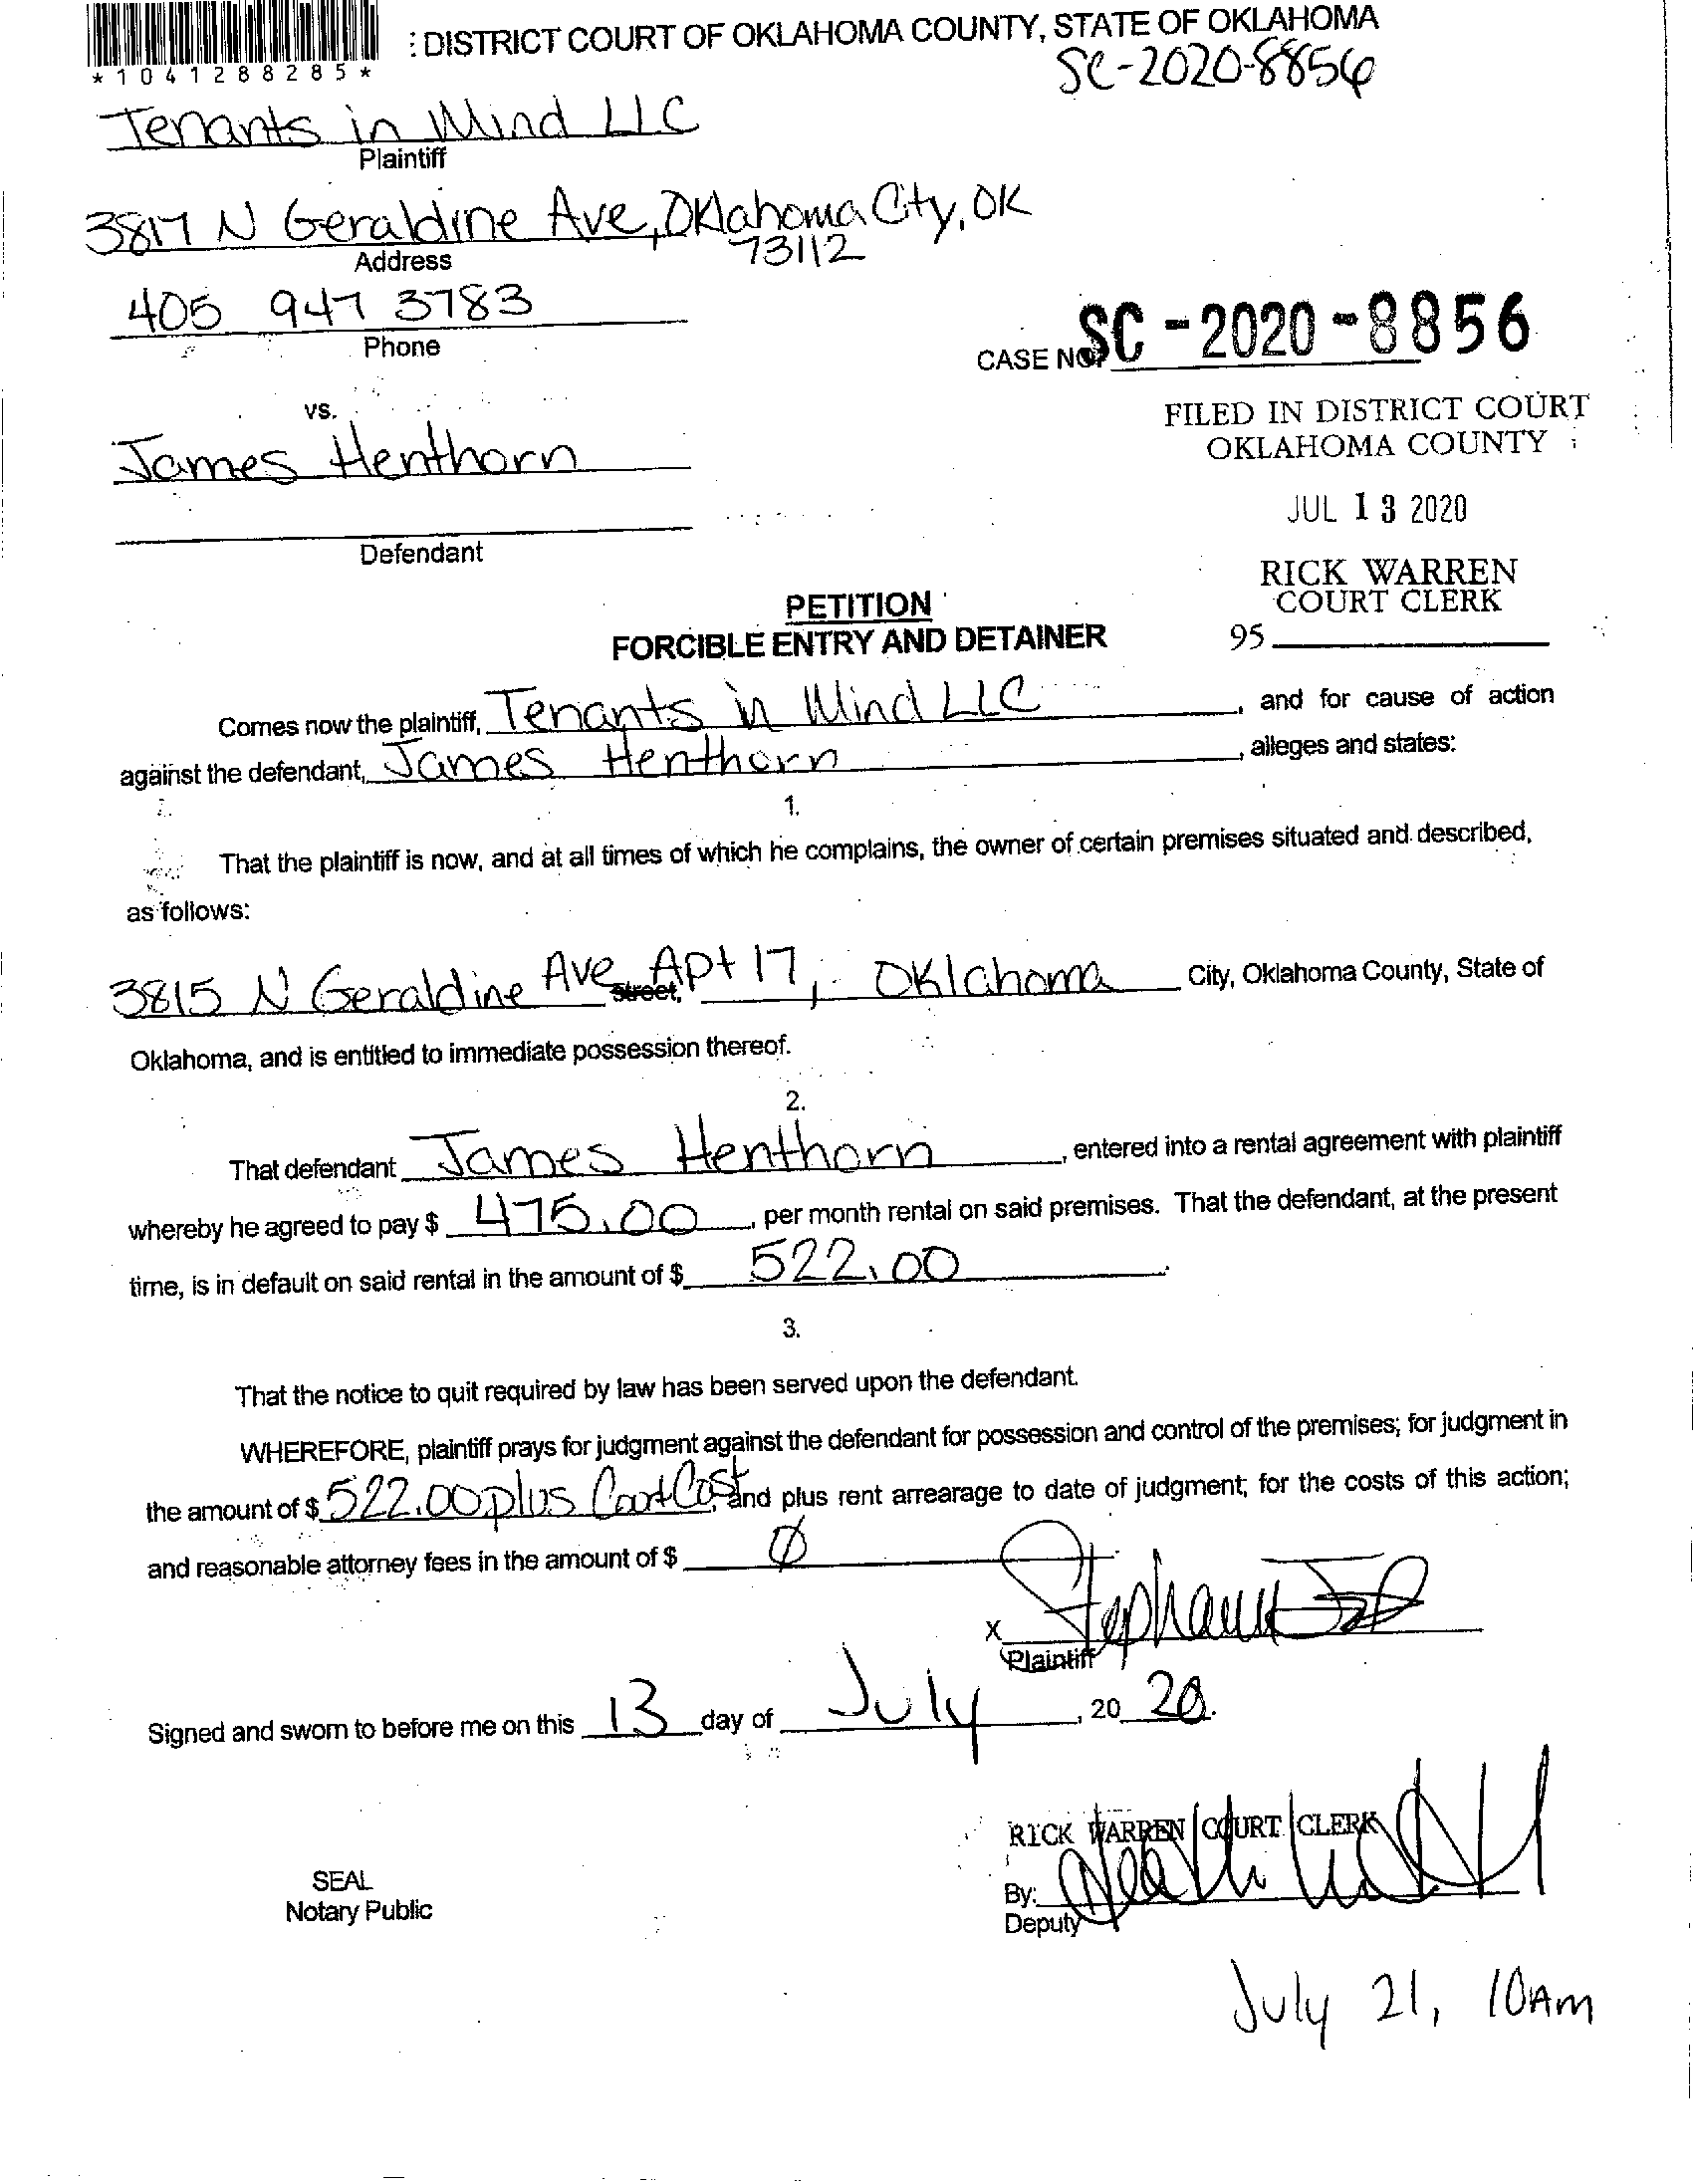 : DISTRICT COURT OF OKLAHOMA COUNTY, STATE OF OKLAHOMA
*1041288285*
SC-2020-8856
Tenants in Mind LLC
Plaintiff
3817 N Geraldine Ave, Oklahoma City, OK
73112
Address
405 947 3783
Phone
CASE NO. SC-2020-8856
vs.
FILED IN DISTRICT COURT
OKLAHOMA COUNTY
James Henthorn
JUL 13 2020
Defendant
RICK WARREN
COURT CLERK
95
PETITION
FORCIBLE ENTRY AND DETAINER
Comes now the plaintiff, Tenants in Mind LLC, and for cause of action
against the defendant, James Henthorn, alleges and states:
1.
That the plaintiff is now, and at all times of which he complains, the owner of certain premises situated and described,
as follows:
3815 N Geraldine Ave Street, Apt 17, Oklahoma City, Oklahoma County, State of
Oklahoma, and is entitled to immediate possession thereof.
2.
That defendant James Henthorn, entered into a rental agreement with plaintiff
whereby he agreed to pay $ 475.00, per month rental on said premises. That the defendant, at the present
time, is in default on said rental in the amount of $ 522.00.
3.
That the notice to quit required by law has been served upon the defendant.
WHEREFORE, plaintiff prays for judgment against the defendant for possession and control of the premises; for judgment in
the amount of $ 522.00 plus Court Cost, and plus rent arrearage to date of judgment; for the costs of this action;
and reasonable attorney fees in the amount of $ Ø
X Stephanie
Plaintiff
Signed and sworn to before me on this 13 day of July, 20 20.
RICK WARREN COURT CLERK
SEAL
Notary Public
By:
Deputy
July 21, 10AM